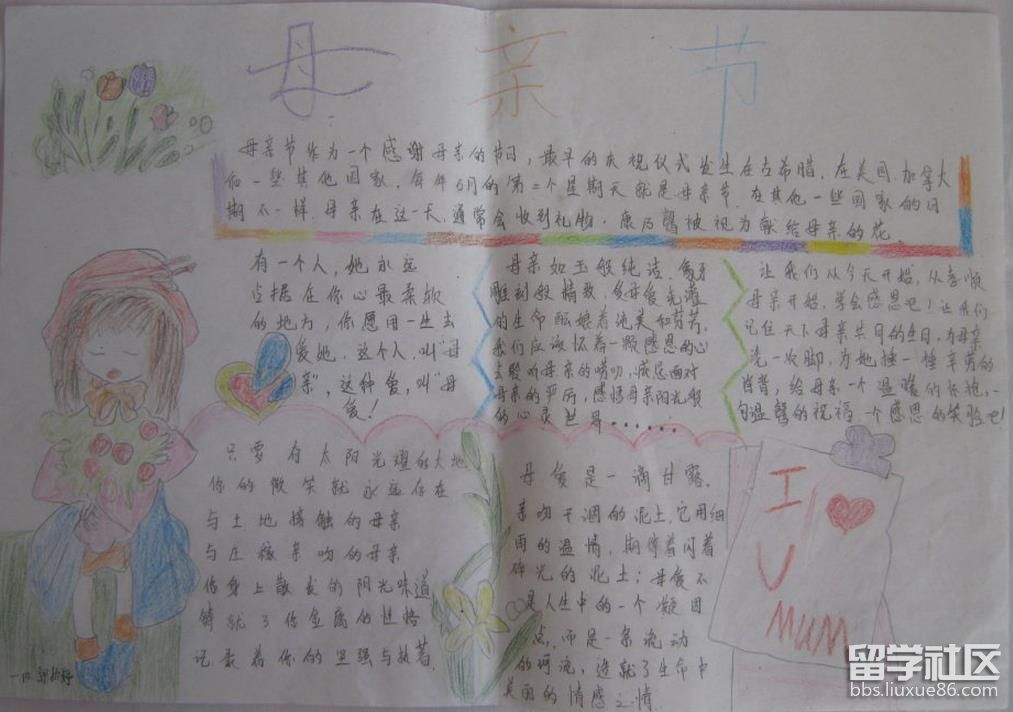 母亲节
母亲节作为一个感谢母亲的节日，最早的庆祝仪式发生在古希腊，在美国、加拿大
和一些其他国家，每年5月的第二个星期天就是母亲节，在其他一些国家的日
期不一样，母亲在这一天，通常会收到礼物，康乃馨被视为献给母亲的花。
有一个人，她永远
占据在你心最柔软
的地方，你愿用一生去
爱她，这个人，叫“母
亲”，这种爱，叫“母
爱！
母亲如玉般纯洁，象牙
雕刻般精致，
的生命酝酿着纯美和芬芳，
我们应该怀着一颗感恩的心
去聆听母亲的唠叨，面对
母亲的严厉，感悟母亲阳光般
的心灵世界······
让我们从今天开始，从孝顺
母亲开始，学会感恩吧！让我们
记住天下母亲共同的生日，为母亲
洗一次脚，为她捶一捶辛劳的
肩背，给母亲一个温暖的怀抱，一
句温馨的祝福，一个感恩的笑脸吧！
只要有太阳光耀的大地
你的微笑就永远存在
与土地接触的母亲
与庄稼亲吻的母亲
你身上散发的阳光味道
铸就了你金属的性格
记载着你的坚强与执着
母爱是一滴甘露，
亲吻干涸的泥土，它用细
雨的温情，期待着闪着
碎光的泥土；母爱不
是人生中的一个凝固
点，而是一条流动
的河流，造就了生命中
美丽的情感之情
I
U
MUM
留学社区
bbs.liuxue86.com